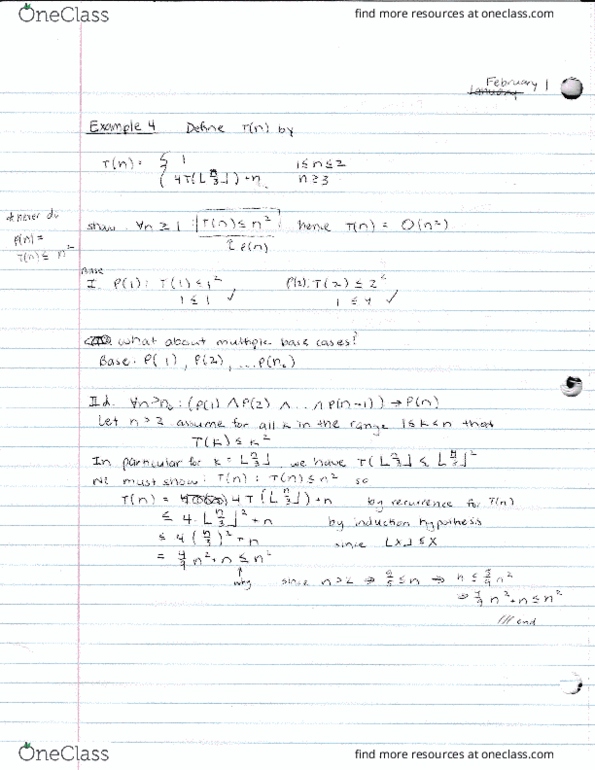 OneClass
find more resources at oneclass.com
February 1
January
Example 4 Define T(n) by
T(n) = { 1 1 ≤ n ≤ 2
{ 4T(⌊n/3⌋) + n n ≥ 3
* never do
P(n) =
T(n) ≤ n²
show ∀n ≥ 1 T(n) ≤ n² hence T(n) = O(n²)
P(n)
Base
I. P(1): T(1) ≤ 1² P(2): T(2) ≤ 2²
1 ≤ 1 ✓ 1 ≤ 4 ✓
what about multiple base cases?
Base. P(1), P(2), ... P(n₀)
II d. ∀n > n₀ : (P(1) ∧ P(2) ∧ ... ∧ P(n-1)) → P(n)
Let n > 2 assume for all k in the range 1 ≤ k < n that
T(k) ≤ k²
In particular for k = ⌊n/3⌋, we have T(⌊n/3⌋) ≤ ⌊n/3⌋²
must show: T(n) : T(n) ≤ n² so
T(n) = 4T(⌊n/3⌋) + n by recurrence for T(n)
≤ 4 · ⌊n/3⌋² + n by induction hypothesis
≤ 4 (n/3)² + n since ⌊x⌋ ≤ x
= 4/9 n² + n ≤ n²
why since n > 2 ⇒ 9/5 ≤ n ⇒ n ≤ 5/9 n²
⇒ 4/9 n² + n ≤ n²
/// end
OneClass
find more resources at oneclass.com